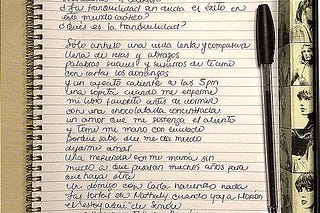 ¿La tranquilidad en duda el éxito en
este mundo caótico?
¿Qué es la tranquilidad?
Sólo anhelo una vida lenta y compartida
llena de risas y abrazos
palabras suaves y
con cartas los domingos
y un cafecito caliente a las 5pm
una sopita cuando me enferme
mi libro favorito antes de dormir
con una chocolatada
un amor que me sostenga el aliento
y tome mi mano con cuidado
porque sabe que me da miedo
dejarme amar
Una merienda con mi mamá sin
miedo a que pasaran muchos años para
que haya otra
Un domingo con Carla haciendo nada
Las tortas de Nathaly cuando voy a Morón
el "estoy aquí" de